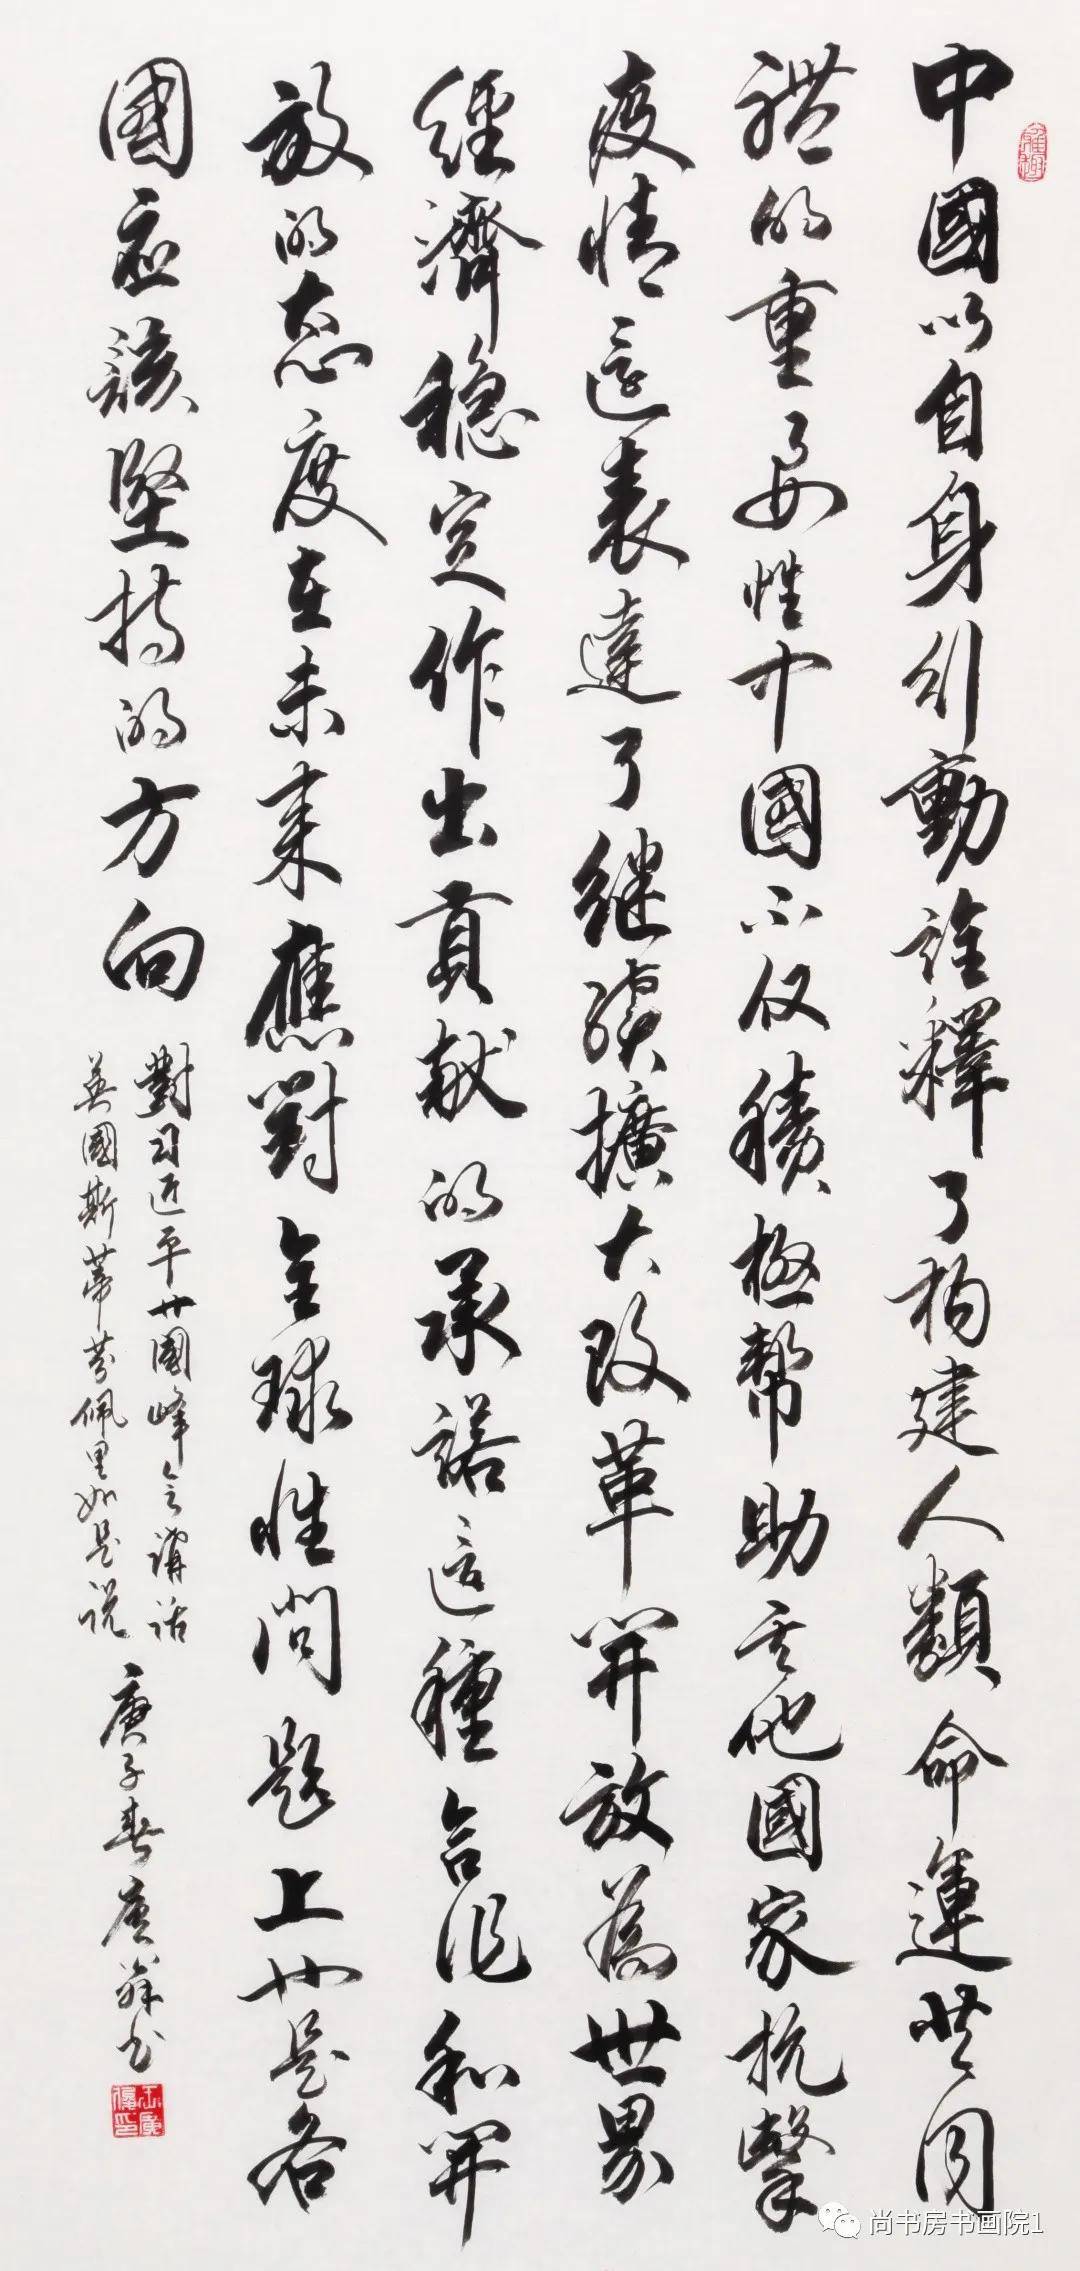 中國以自身引動詮釋了構建人類命運共同
體的重要性中國不仅積極幫助其他國家抗擊
疫情還表達了继續擴大改革開放為世界
經濟稳定作出貢献的承諾這種合作和開
放的态度在未来應對全球性问题上也是各
國应該堅持的方向
對习近平廿國峰会講话
英國斯蒂芬佩里如是说
庚子春庚书
尚书房书画院1